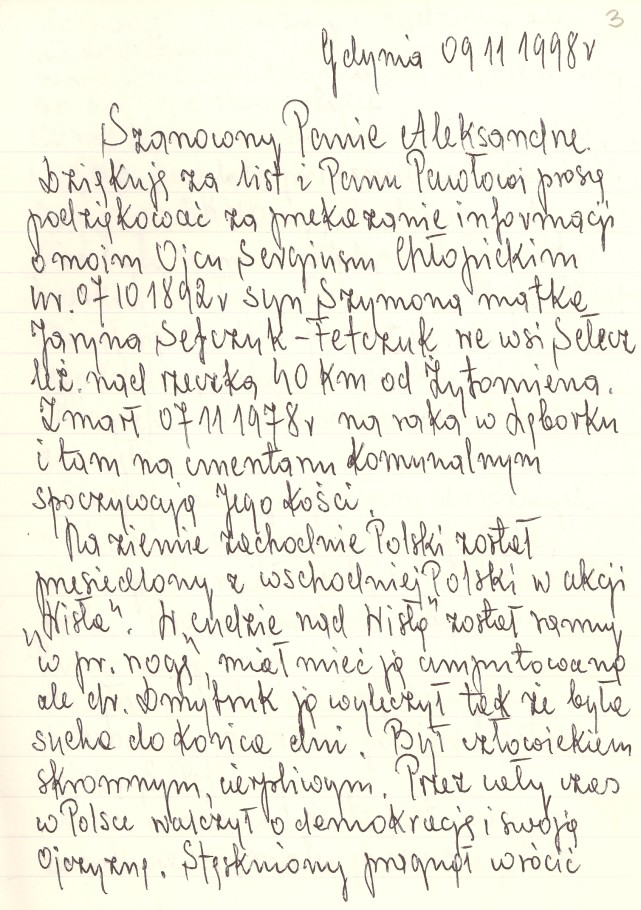 3
Gdynia 09 11 1998r
Szanowny Panie Aleksandrze.
Dziękuję za list i Panu Pawłowi proszę
podziękować za przekazanie informacji
o moim Ojcu Sergiusm Chłopickim
ur. 07 10 1892r syn Szymona matka
Jaryna Sefczuk-Fetczuk we wsi Sełecz
leż. nad rzeczką 40 km od Żytomierza.
Zmarł 07 11 1978r na raka w Lęborku
i tam na cmentarzu Komunalnym
spoczywają Jego Kości.
Na ziemie zachodnie Polski został
przesiedlony z wschodniej Polski w akcji
„Wisła". W „cudzie nad Wisłą" został ranny
w pr. nogę, miał mieć ją amputowaną
ale dr. Dmytruk ją wyleczył tak że była
sucha do końca dni. Był człowiekiem
skromnym, cierpliwym. Przez cały czas
w Polsce walczył o demokrację i swoją
Ojczyznę. Stęskniony pragnął wrócić